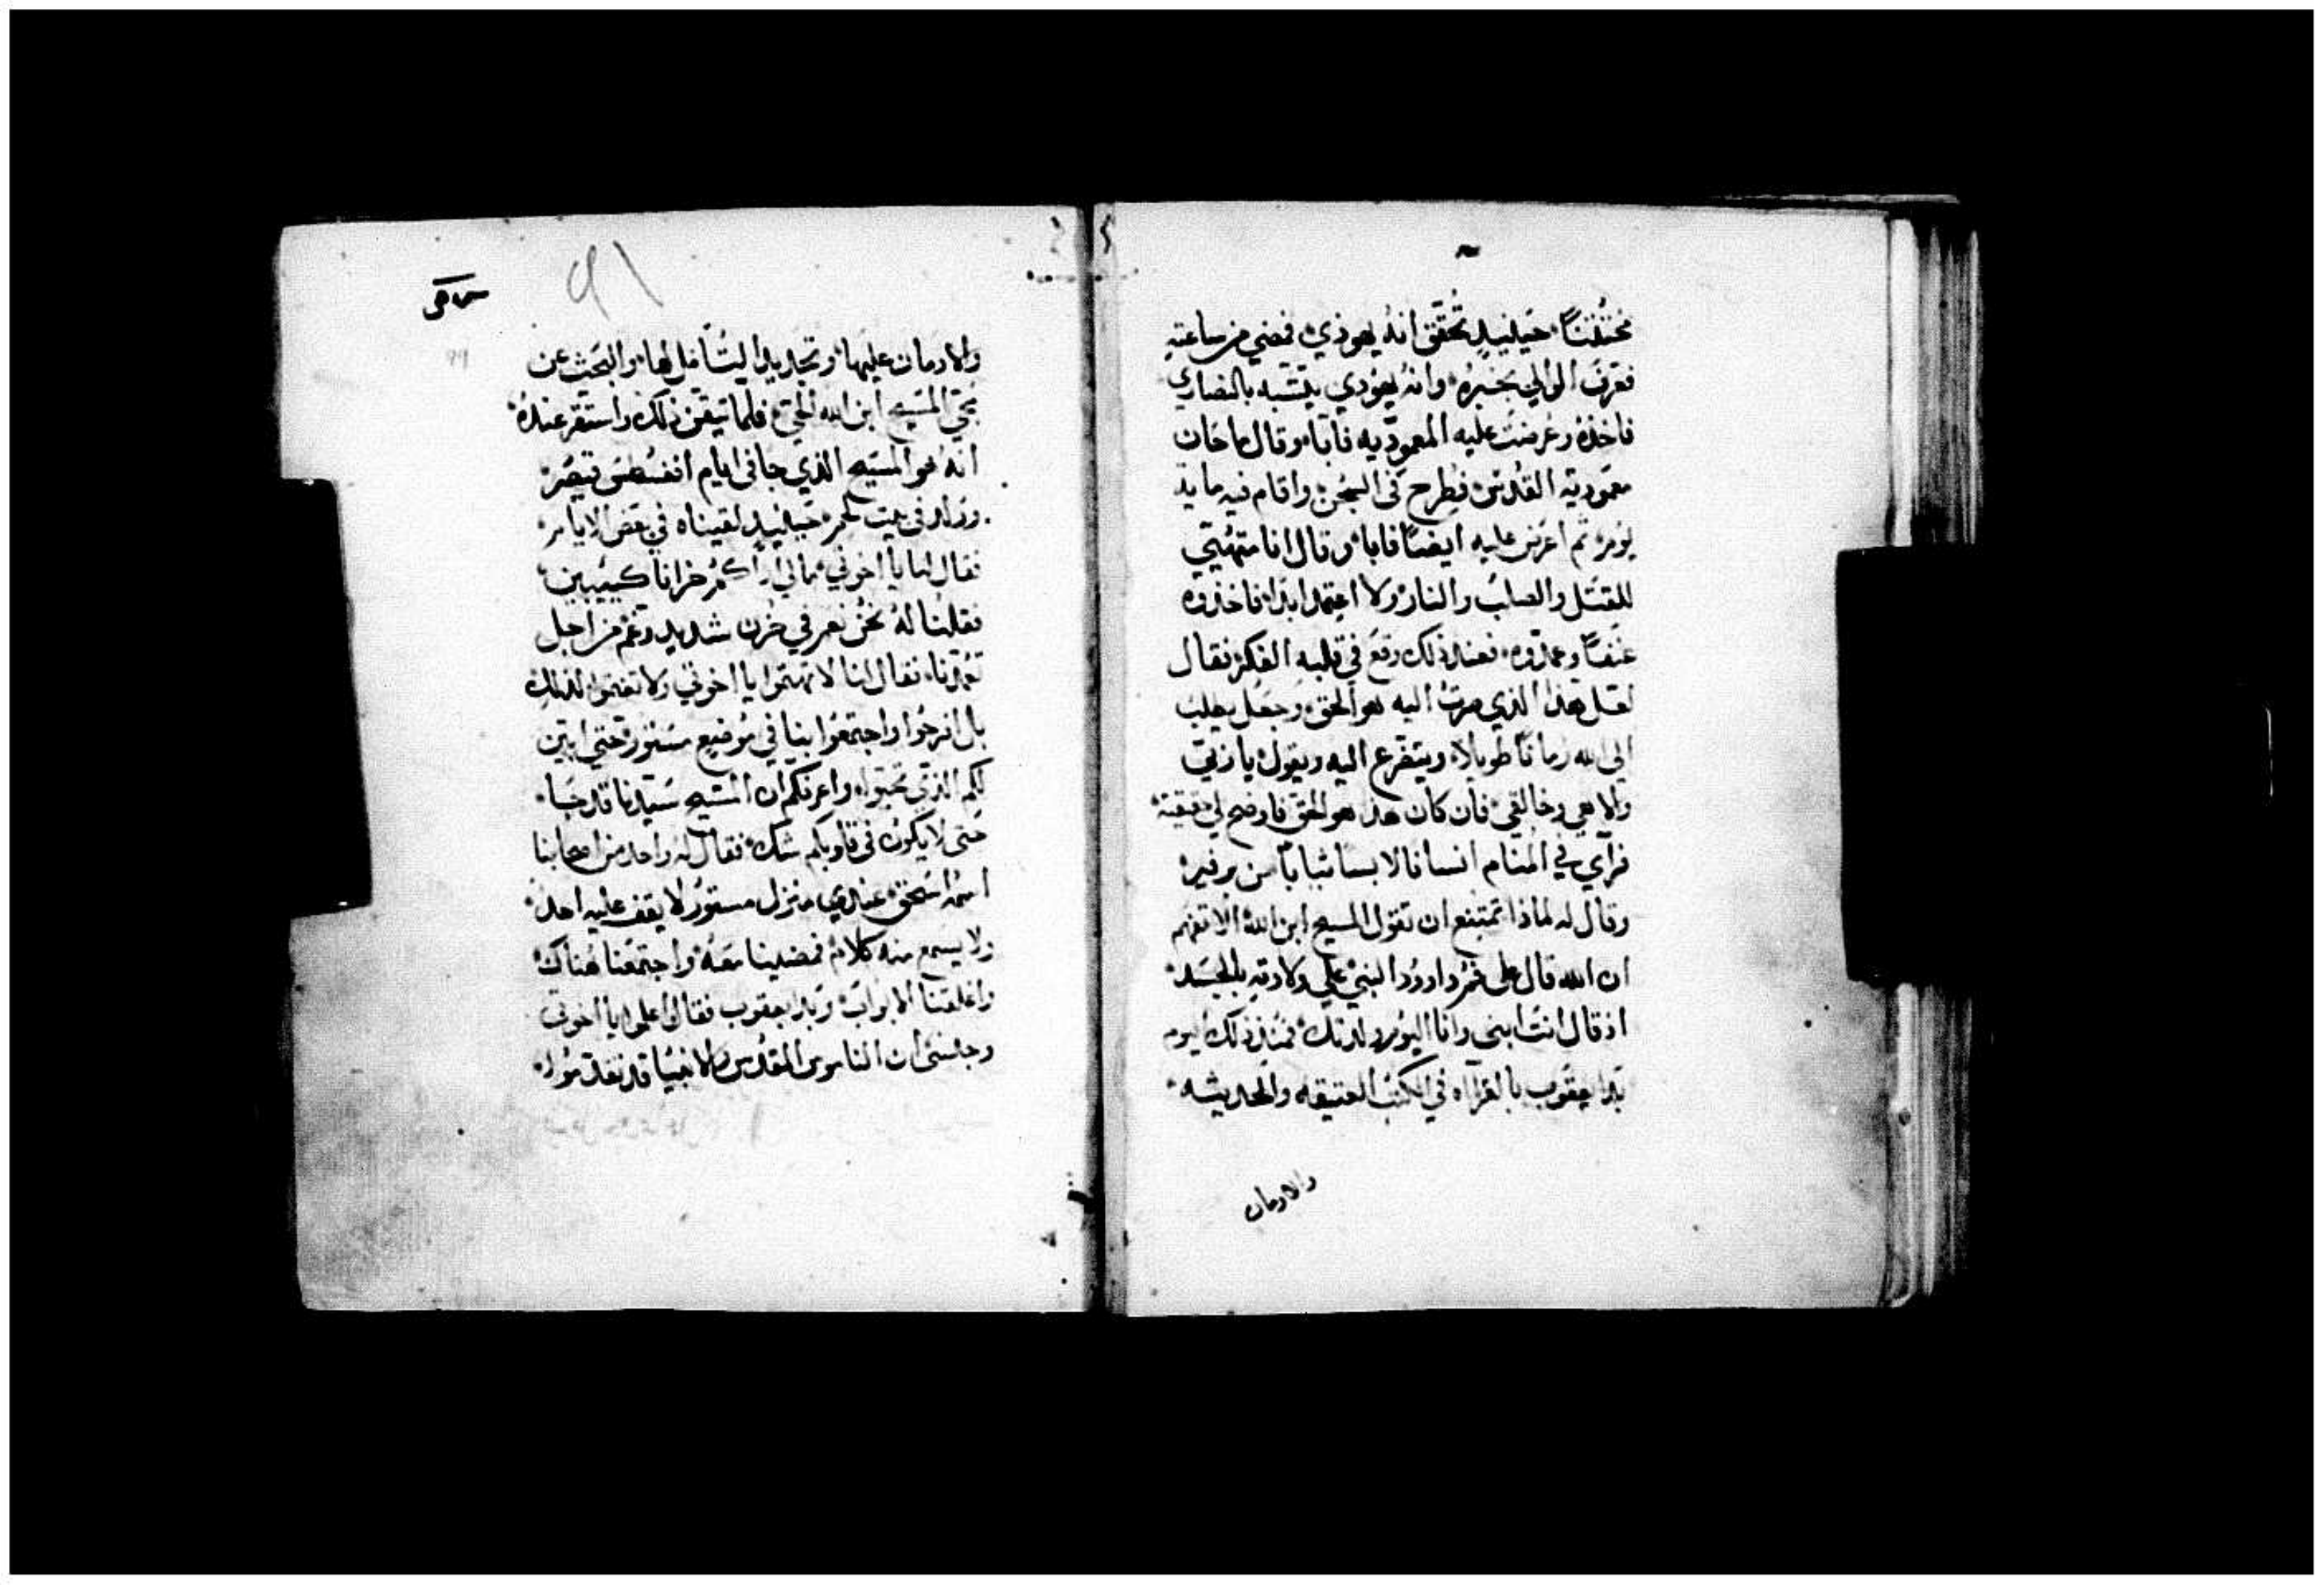 مختتنًا حينيذٍ تحقق انهُ يهوذي فمضي من ساعته
فعرف الوالي بخبره وانهُ يهودي يتشبه بالنصاري
فاخذهُ وعرضت عليه المعموديه فابا وقال
معمودية القدس فطرح في السجن واقام فيه ماية
يوم ثم اعرض عليه ايضًا فابا وقال انا متهيي
للقتل والصلب والنار ولا اعتمد ابدا فاخذوه
عنفًا وعمدوه فعند ذلك وقع في قلبه الفكر فقال
لعل هذا الذي صرت اليه هو الحق وجعل يطلب
الي الله زمانًا طويلا ويتضرع اليه ويقول يا ربي
والاهي وخالقي فان كان هذا هو الحق فاوضح لي حقيقته
فراي في المنام انسانا لابسا ثيابًا من برفير
وقال له لماذا تمتنع ان تقول المسيح ابن الله الا تفهم
ان الله قال على فم داوود النبي علي ولادته بالجسد
اذ قال انت ابني وانا اليوم ولدتك فمنذ ذلك اليوم
بدا يعقوب بالقرآاه في الكتب العتيقه والحديثه
والادمان
٩١
والادمان عليها وتجديد التامل لها والبحث عن
مجي المسيح ابن الله الحي فلما تيقن ذلك واستقر عندهُ
انه هو المسيح الذي جا في ايام اغسطس قيصر
وولد في بيت لحم حينيذٍ لقيناه في بعض الايام
فقال لنا يا اخوتي مالي اراكم حزانا كييبين
فقلنا لهُ نحن نعم في حزن شديد وغم من اجل
تعمدنا فقال لنا لا تهتموا يا اخوتي ولا تغتموا لذلك
بل افرحوا واجتمعوا بنا في موضع مستور حتي ابين
لكم الذي تحبوا واعرفكم ان المسيح سيدنا قد جا
حتى لا يكون في قلوبكم شك فقال له واحد من اصحابنا
اسمه اسحق عندي منزل مستور لا يقف عليه احد
ولا يسمع منه كلام فمضينا معهُ واجتمعنا هناك
واغلقنا الابواب وبدا يعقوب فقال اعلموا يا اخوتي
وجنسي ان الناموس المقدس والانبيا قد نفذ